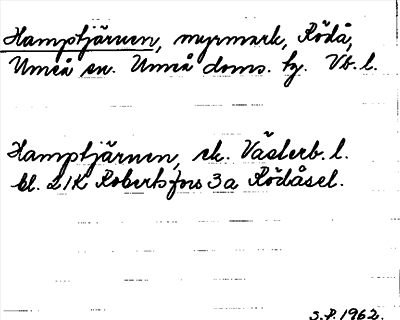 Hamptjärnen, myrmark, Rödå,
Umeå sn. Umeå doms. tg. Vb. l.
Hamptjärnen, ek. Västerb. l.
bl. 21K Robertsfors 3a Rödåsel.
S.P. 1962.